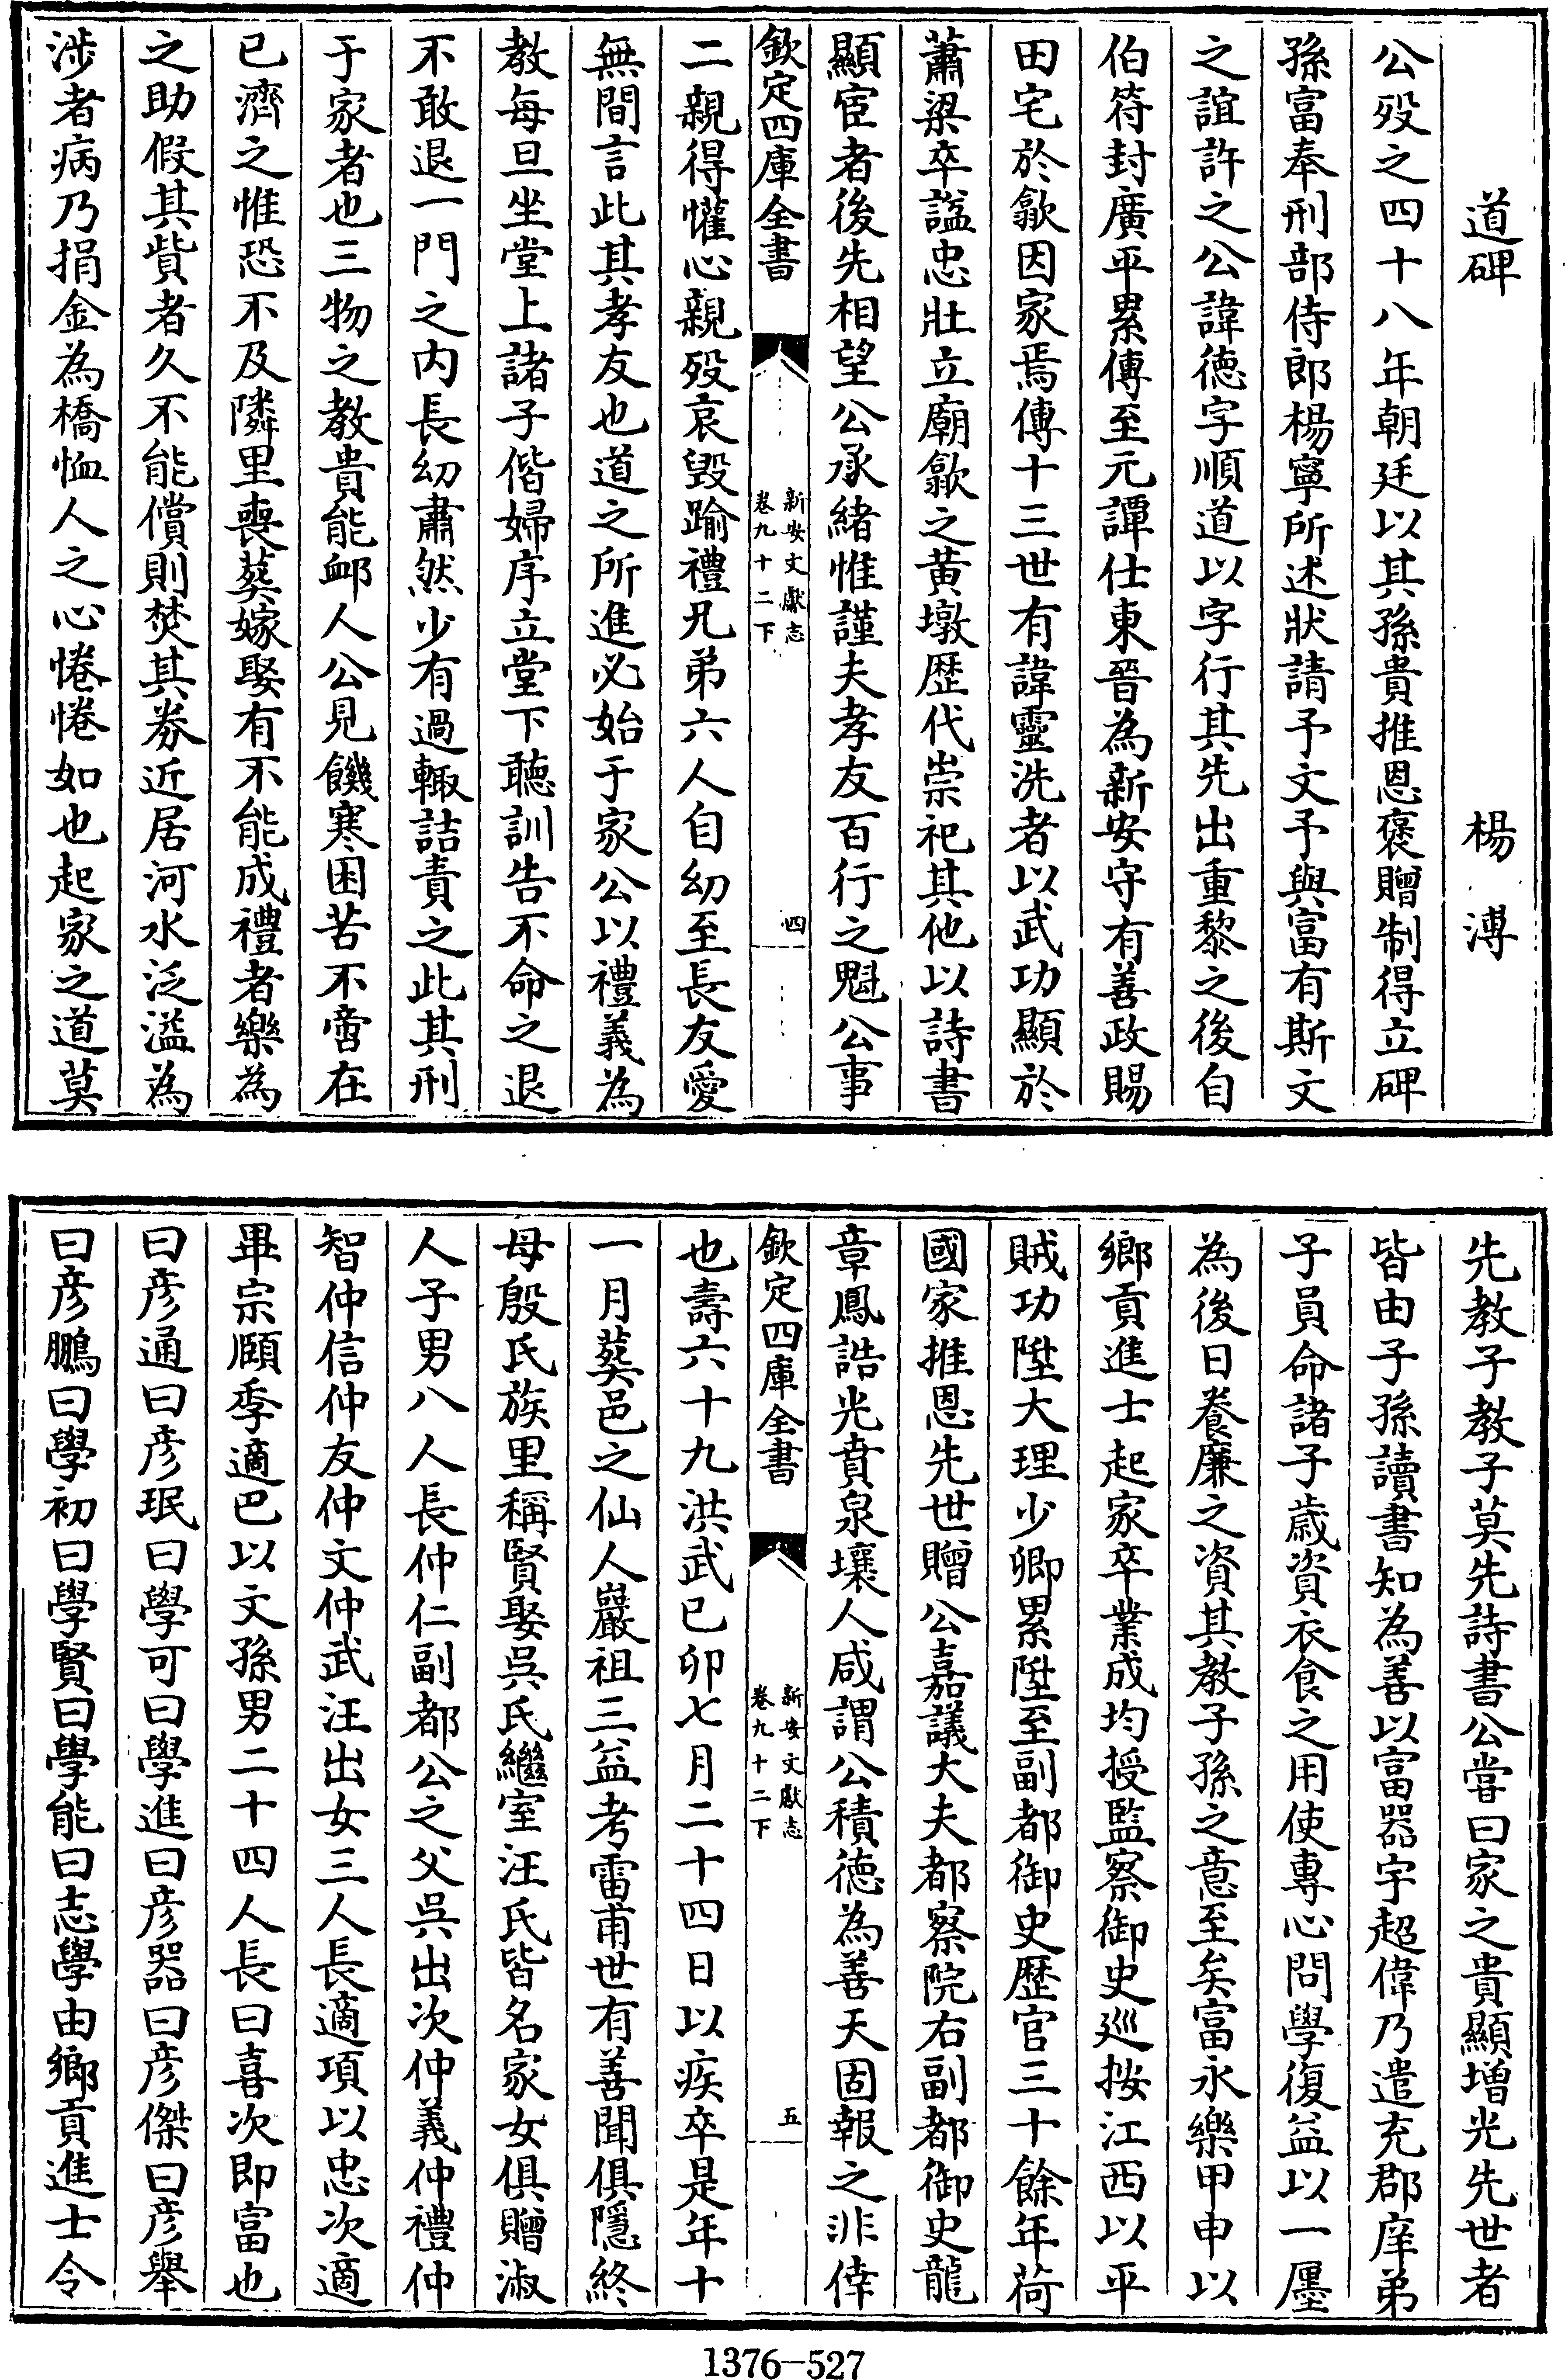 道碑　楊溥
公殁之四十八年朝廷以其孫貴推恩褒贈制得立碑
孫富奉刑部侍郎楊寧所述狀請予文予與富有斯文
之誼許之公諱德字順道以字行其先出重黎之後自
伯符封廣平累傳至元譚仕東晉為新安守有善政賜
田宅於歙因家焉傳十三世有諱靈洗者以武功顯於
蕭梁卒諡忠壯立廟歙之黃墩歴代崇祀其他以詩書
顯宦者後先相望公承緒惟謹夫孝友百行之魁公事
欽定四庫全書　新安文獻志　卷九十二下　四
二親得懽心親殁哀毀踰禮兄弟六人自幼至長友愛
無間言此其孝友也道之所進必始于家公以禮義為
教每旦坐堂上諸子偕婦序立堂下聽訓告不命之退
不敢退一門之内長幼肅然少有過輙詰責之此其刑
于家者也三物之教貴能卹人公見饑寒困苦不啻在
已濟之惟恐不及隣里喪葬嫁娶有不能成禮者樂為
之助假其貲者久不能償則焚其劵近居河水泛溢為
涉者病乃捐金為橋恤人之心惓惓如也起家之道莫
先教子教子莫先詩書公嘗曰家之貴顯增光先世者
皆由子孫讀書知為善以富器宇超偉乃遣充郡庠弟
子員命諸子歲資衣食之用使專心問學復益以一㕓
為後日養廉之資其教子孫之意至矣富永樂甲申以
鄉貢進士起家卒業成均授監察御史巡按江西以平
賊功陞大理少卿累陞至副都御史歴官三十餘年荷
國家推恩先世贈公嘉議大夫都察院右副都御史龍
章鳳誥光賁泉壤人咸謂公積德為善天固報之非倖
欽定四庫全書　新安文獻志　卷九十二下　五
也壽六十九洪武已卯七月二十四日以疾卒是年十
一月葬邑之仙人巖祖三益考雷甫世有善聞俱隱終
母殷氏族里稱賢娶吳氏繼室汪氏皆名家女俱贈淑
人子男八人長仲仁副都公之父吳出次仲義仲禮仲
智仲信仲友仲文仲武汪出女三人長適項以忠次適
畢宗頤季適巴以文孫男二十四人長曰喜次即富也
曰彥通曰彥珉曰學可曰學進曰彥器曰彥傑曰彥舉
曰彥鵬曰學初曰學賢曰學能曰志學由鄉貢進士令
1376-527